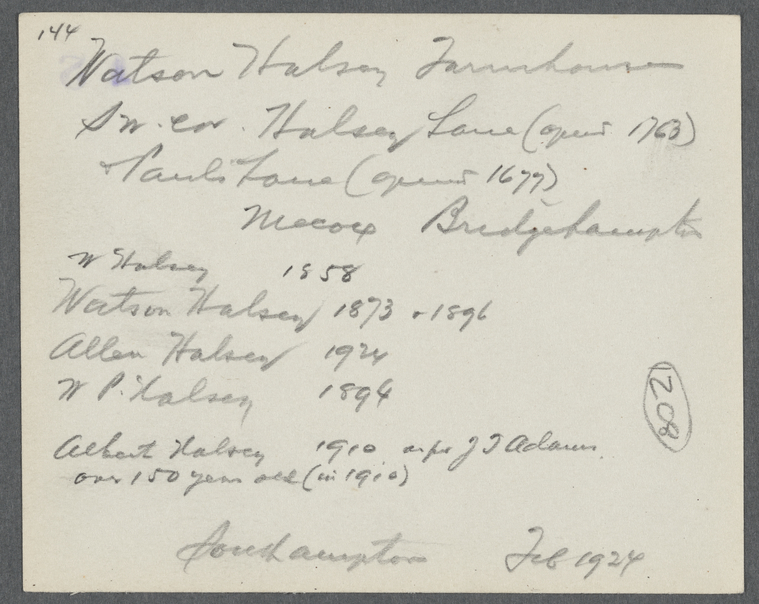 144
Watson Halsey Farmhouse
S.W. cor. Halsey Lane (open 1763)
+ Pauls Lane (open 1677)
Mecox Bridgehampton
W Halsey 1858
Watson Halsey 1873 + 1896
Allen Halsey 1924
W P. Halsey 1894
Albert Halsey 1910 as per J T Adams
over 150 years old (in 1910)
1208
Southampton Feb 1924